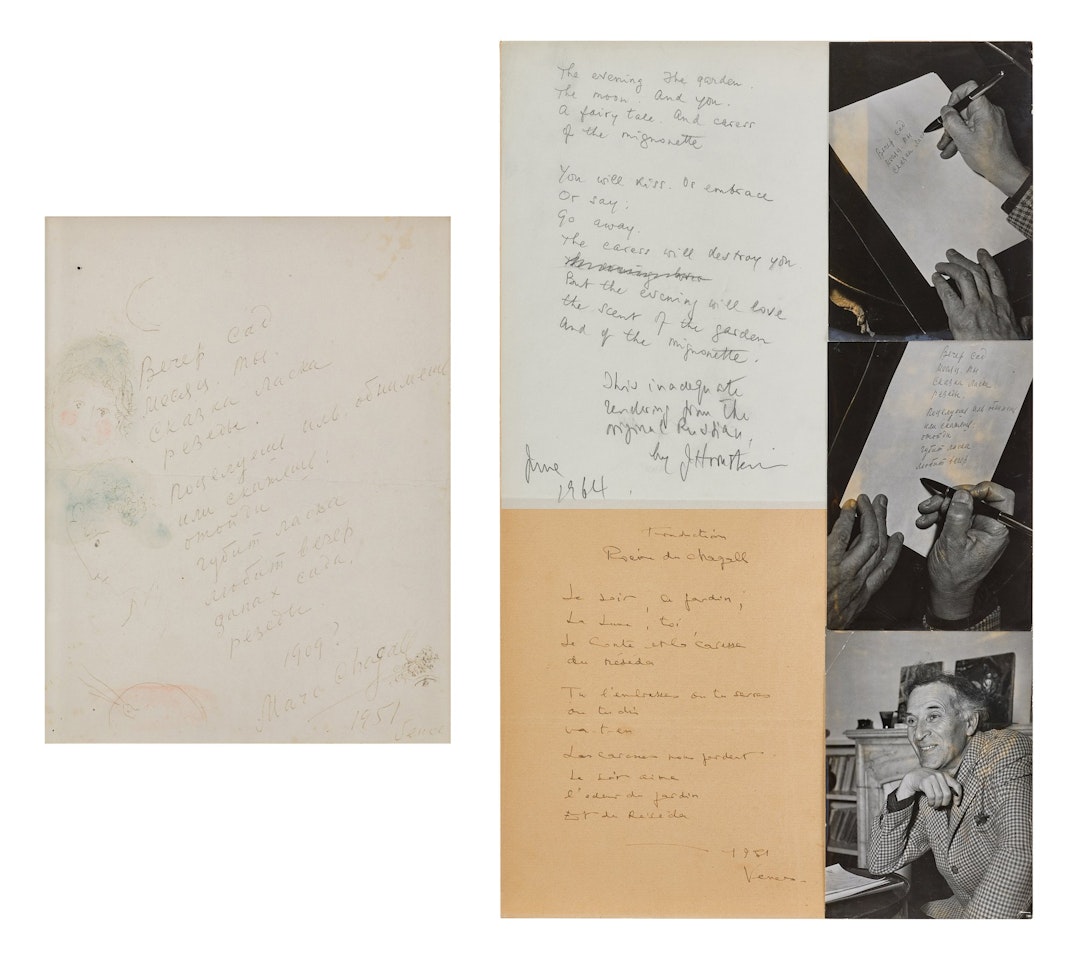 Вечер сад
месяц. ты.
сказка ласка
резеды.
поцелуешь иль обнимешь
или скажешь:
отойди
губит ласка
любит вечер
запах сада.
резеды.
1909?
Marc Chagall
1951
Vence
The evening The garden.
The moon. And you.
A fairy tale. And caress
of the mignonette
You will kiss. Or embrace
Or say:
Go away.
The caress will destroy you.
But the evening will love
the scent of the garden
And of the mignonette.
This inadequate
rendering from the
original Russian,
by J Hornstein
June
1964.
Traduction
Poème de Chagall
Le soir, le jardin,
La Lune, toi
Le Conte et la Caresse
du Réséda
Tu l'embrasses ou tu serres
ou tu dis
va-t-en
Les caresses nous perdent
Le soir aime
l'odeur du jardin
Et du Réséda
1951
Vence
Вечер сад
месяц ты
сказка ласка
Вечер сад
месяц ты
сказка ласка
резеды
поцелуешь иль обнимешь
или скажешь
отойди
губит ласка
любит вечер